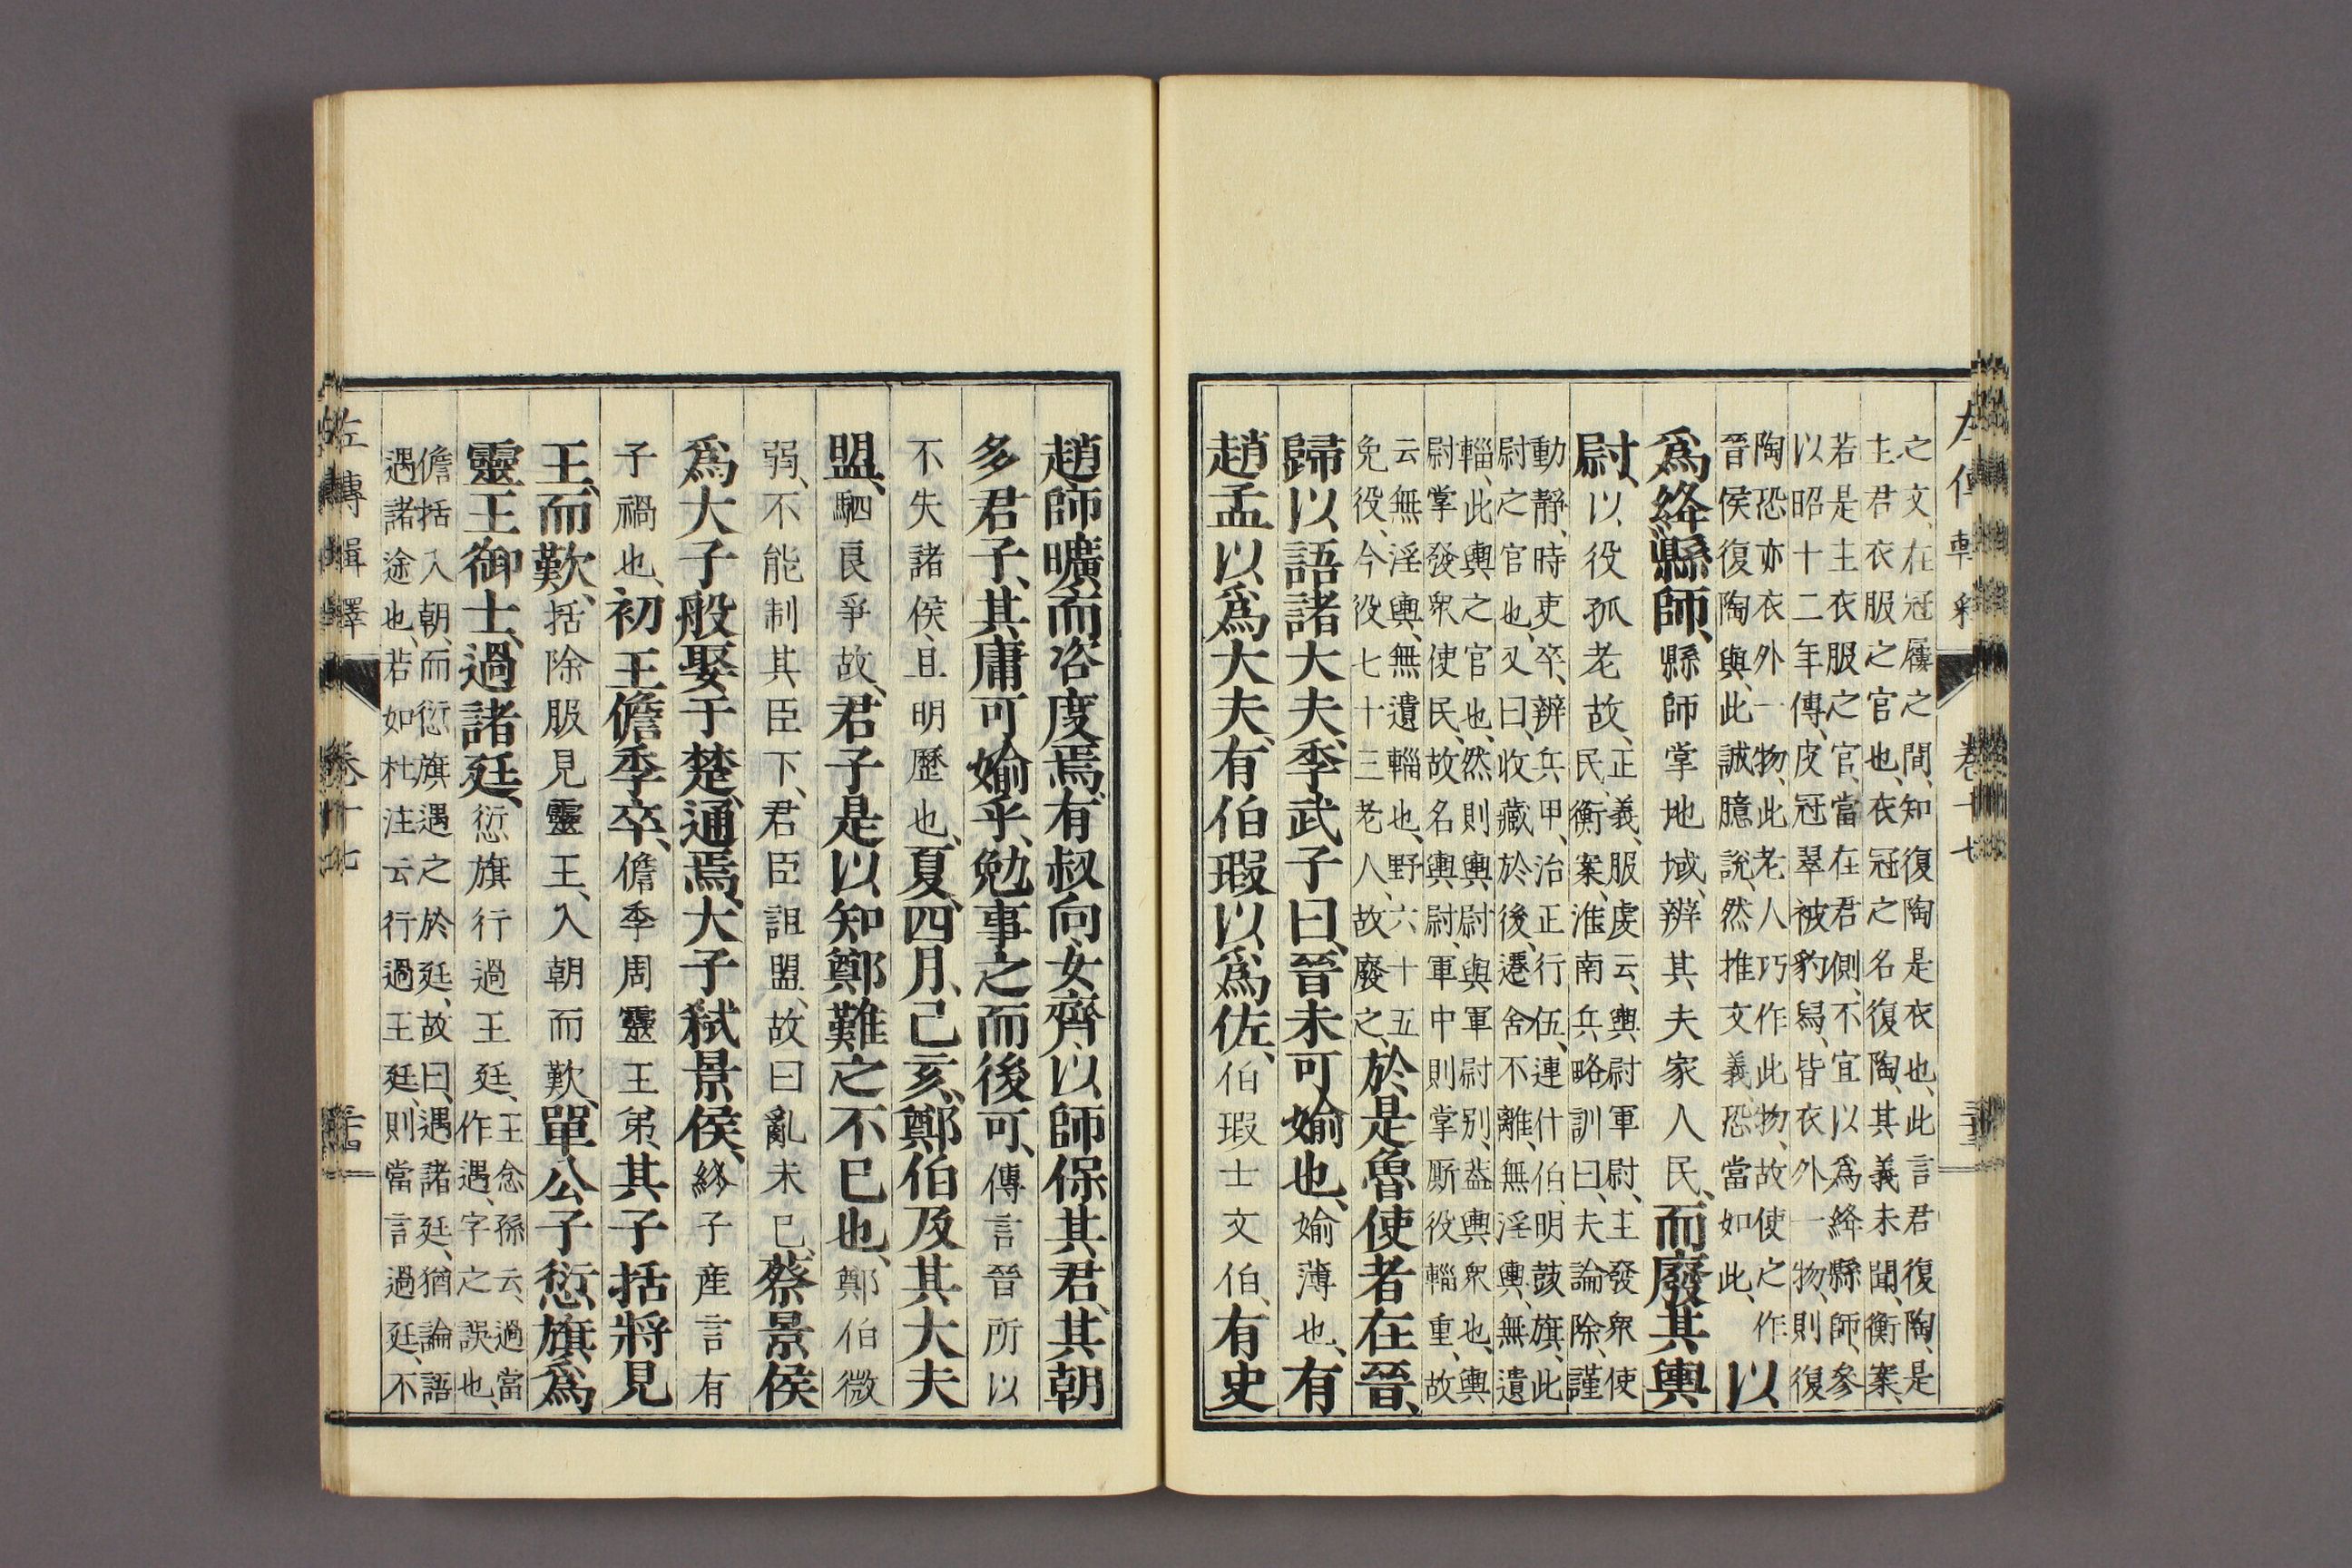 左傳輯釋 卷十七 三十三
之文、在冠履之間、知復陶是衣也、此言君復陶、是
主君衣服之官也、衣冠之名復陶、其義未聞、衡案、
若是主衣服之官、當在君側、不宜以爲絳縣師、參
以昭十二年傳、皮冠翠被豹舄、皆衣外一物、則復
陶恐亦衣外一物、此老人巧作此物、故使之作
晉侯復陶與、此誠臆說、然推文義、恐當如此、
以
爲絳縣師、縣師掌地域、辨其夫家人民、而廢其輿
尉、以役孤老故、
正義、服虔云、輿尉軍尉、主發衆使
民、衡案、淮南兵略訓曰、夫論除、謹
動靜、時吏卒、辨兵甲、治正行伍、連什伯、明鼓旗、此
尉之官也、又曰、收藏於後、遷舍不離、無淫輿、無遺
輜、此輿之官也、然則輿尉與軍尉別、蓋輿衆也、輿
尉掌發衆使民、故名輿尉、軍中則掌厮役輜重、故
云無淫輿、無遺輜也、野六十五
免役、今役七十三老人、故廢之、
於是魯使者在晉、
歸以語諸大夫、季武子曰、晉未可媮也、媮薄也、有
趙孟以爲大夫、有伯瑕以爲佐、伯瑕士文伯、有史
趙師曠而咨度焉、有叔向女齊、以師保其君、其朝
多君子、其庸可媮乎、勉事之而後可、傳言晉所以
不失諸侯、且明歷也、夏、四月、己亥、鄭伯及其大夫
盟、駟良爭故、君子是以知鄭難之不已也、鄭伯微
弱、不能制其臣下、君臣詛盟、故曰亂未已、蔡景侯
爲大子般娶于楚、通焉、大子弒景侯、終子産言有
子禍也、初王儋季卒、儋季周靈王弟、其子括將見
王、而歎、括除服見靈王、入朝而歎、單公子愆旗爲
靈王御士、過諸廷、愆旗行過王廷、
王念孫云、過當
作遇、字之誤也、
儋括入朝、而愆旗遇之於廷、故曰、遇諸廷、猶論語
遇諸途也、若如杜注云行過王廷、則當言過廷、不
左傳輯釋 卷十七 三十四